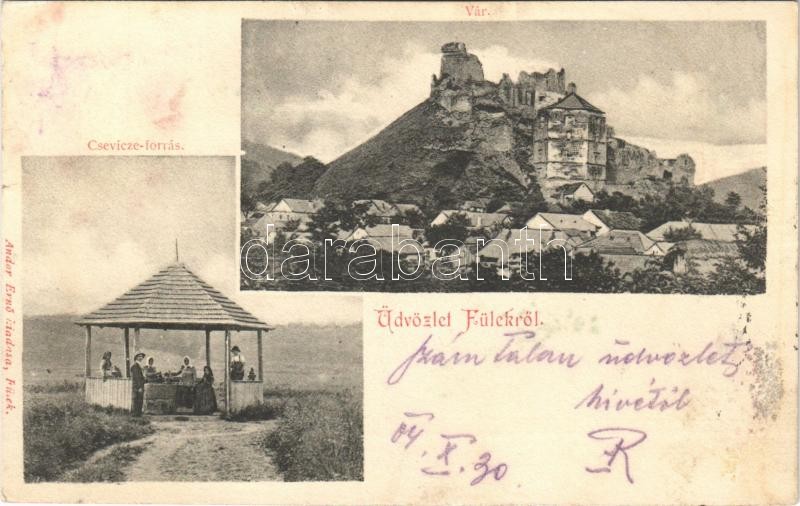 Vár.
Csevicze-forrás.
darabanth.com
Üdvözlet Fülekről.
Andor Ernő kiadása, Fülek.
Szám Talan üdvözlet
hívétöl
R
04. X. 30